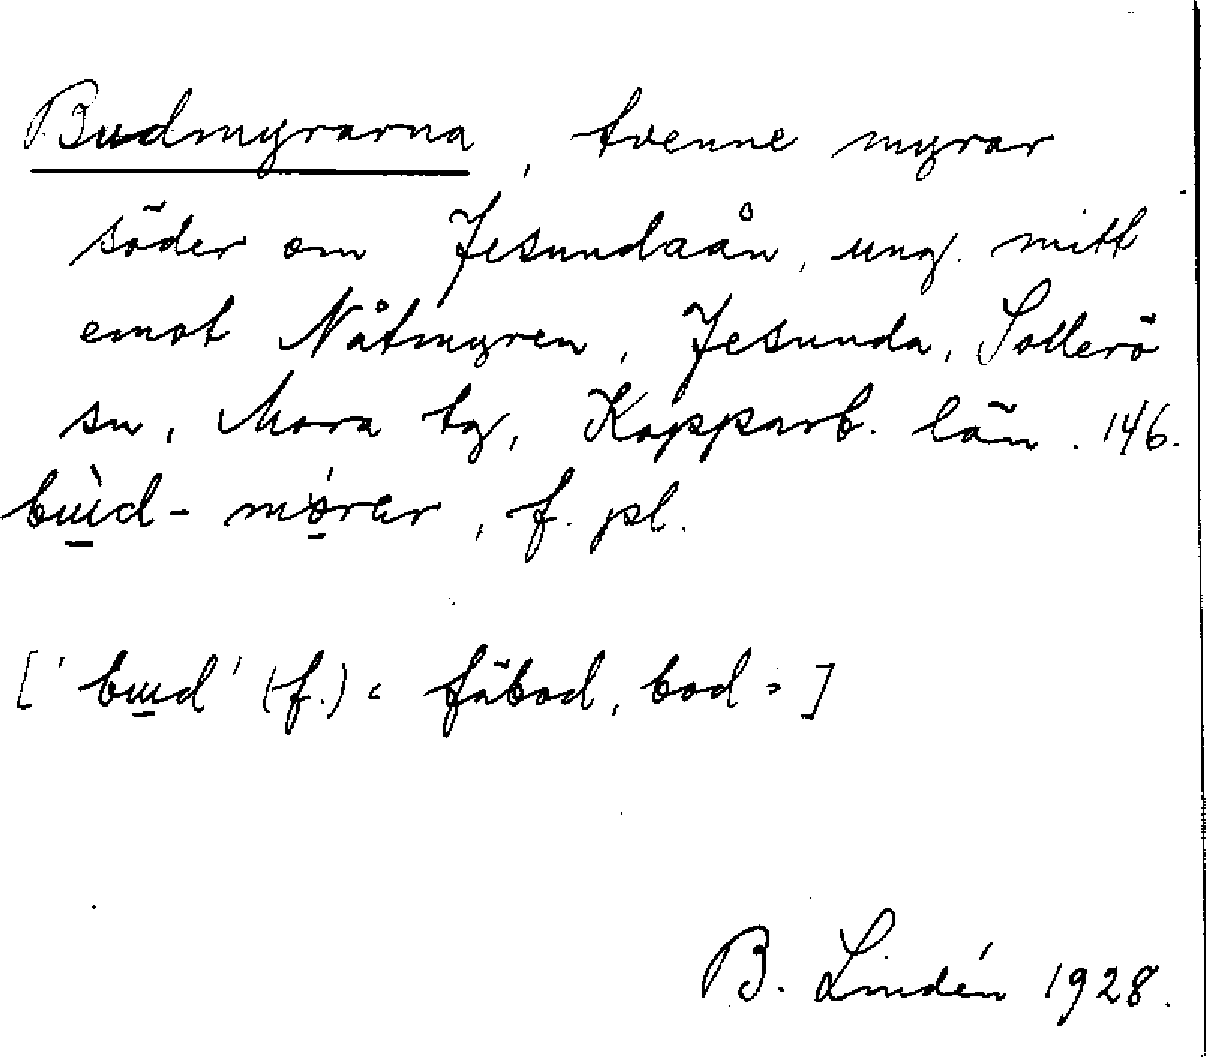 Budmyrarna, tvenne myrar
söder om Jesundaån, ung. mitt
emot Nåtmyren, Jesunda, Sollerö
sn, Mora tg, Kopparb. län. 146.
bùd- mórar, f. pl.
['bud' (f.) < fäbod, bod >]
B. Lindén 1928.